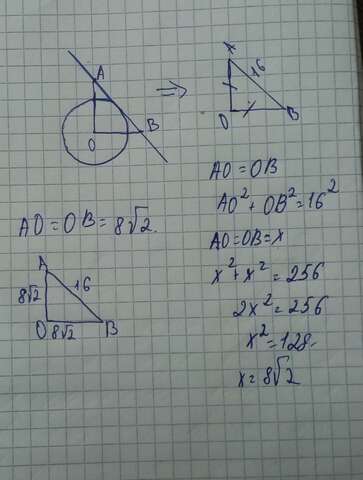 A
O
B
⇒
A
16
O
B
AO = OB
AO² + OB² = 16²
AO = OB = x
x² + x² = 256
2x² = 256
x² = 128
x = 8√2
AO = OB = 8√2.
A
8√2
16
O
8√2
B